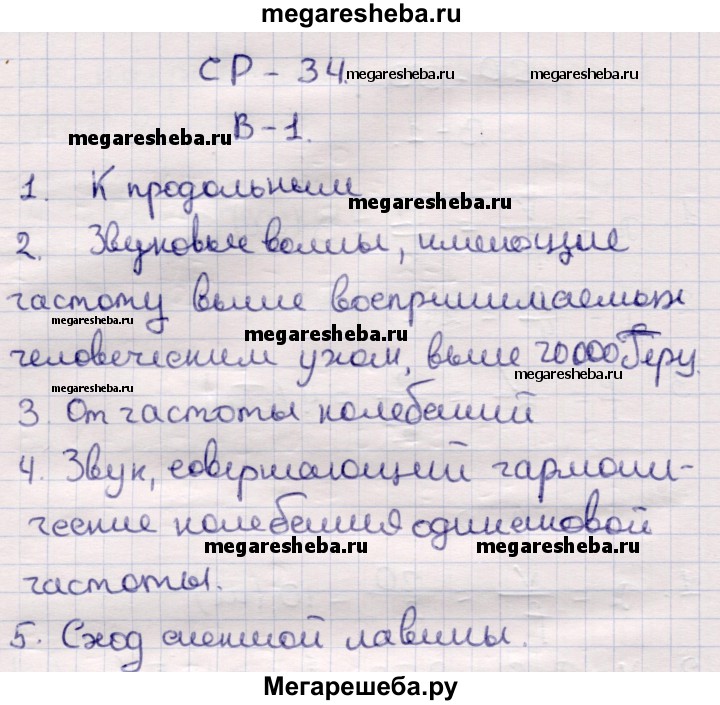 megaresheba.ru
СР - 34.
megaresheba.ru megaresheba.ru
В - 1.
megaresheba.ru
1. К продольным
megaresheba.ru
2. Звуковые волны, имеющие
частоту выше воспринимаемых
megaresheba.ru
megaresheba.ru
человеческим ухом, выше 20000 Герц.
megaresheba.ru
megaresheba.ru
3. От частоты колебаний
4. Звук, совершающий гармони-
ческие колебания одинаковой
megaresheba.ru megaresheba.ru
частоты.
5. Сход снежной лавины.
Мегарешеба.ру